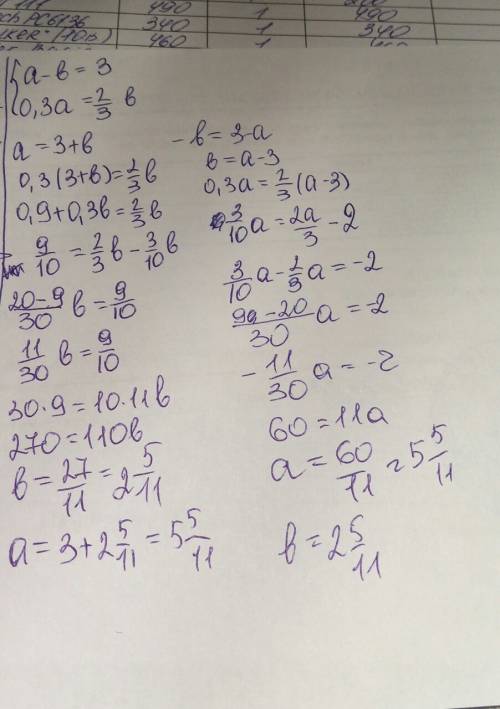 490 1 490
ch PC6136 340 1 340
460 1
a - b = 3
0,3a = 2/3 b
a = 3 + b
0,3(3+b) = 2/3 b
0,9 + 0,3b = 2/3 b
9/10 = 2/3 b - 3/10 b
20-9/30 b = 9/10
11/30 b = 9/10
30·9 = 10·11b
270 = 110b
b = 27/11 = 2 5/11
a = 3 + 2 5/11 = 5 5/11
- b = 3 - a
b = a - 3
0,3a = 2/3 (a - 3)
3/10 a = 2a/3 - 2
3/10 a - 2/3 a = -2
9a-20/30 a = -2
- 11/30 a = -2
60 = 11a
a = 60/11 = 5 5/11
b = 2 5/11